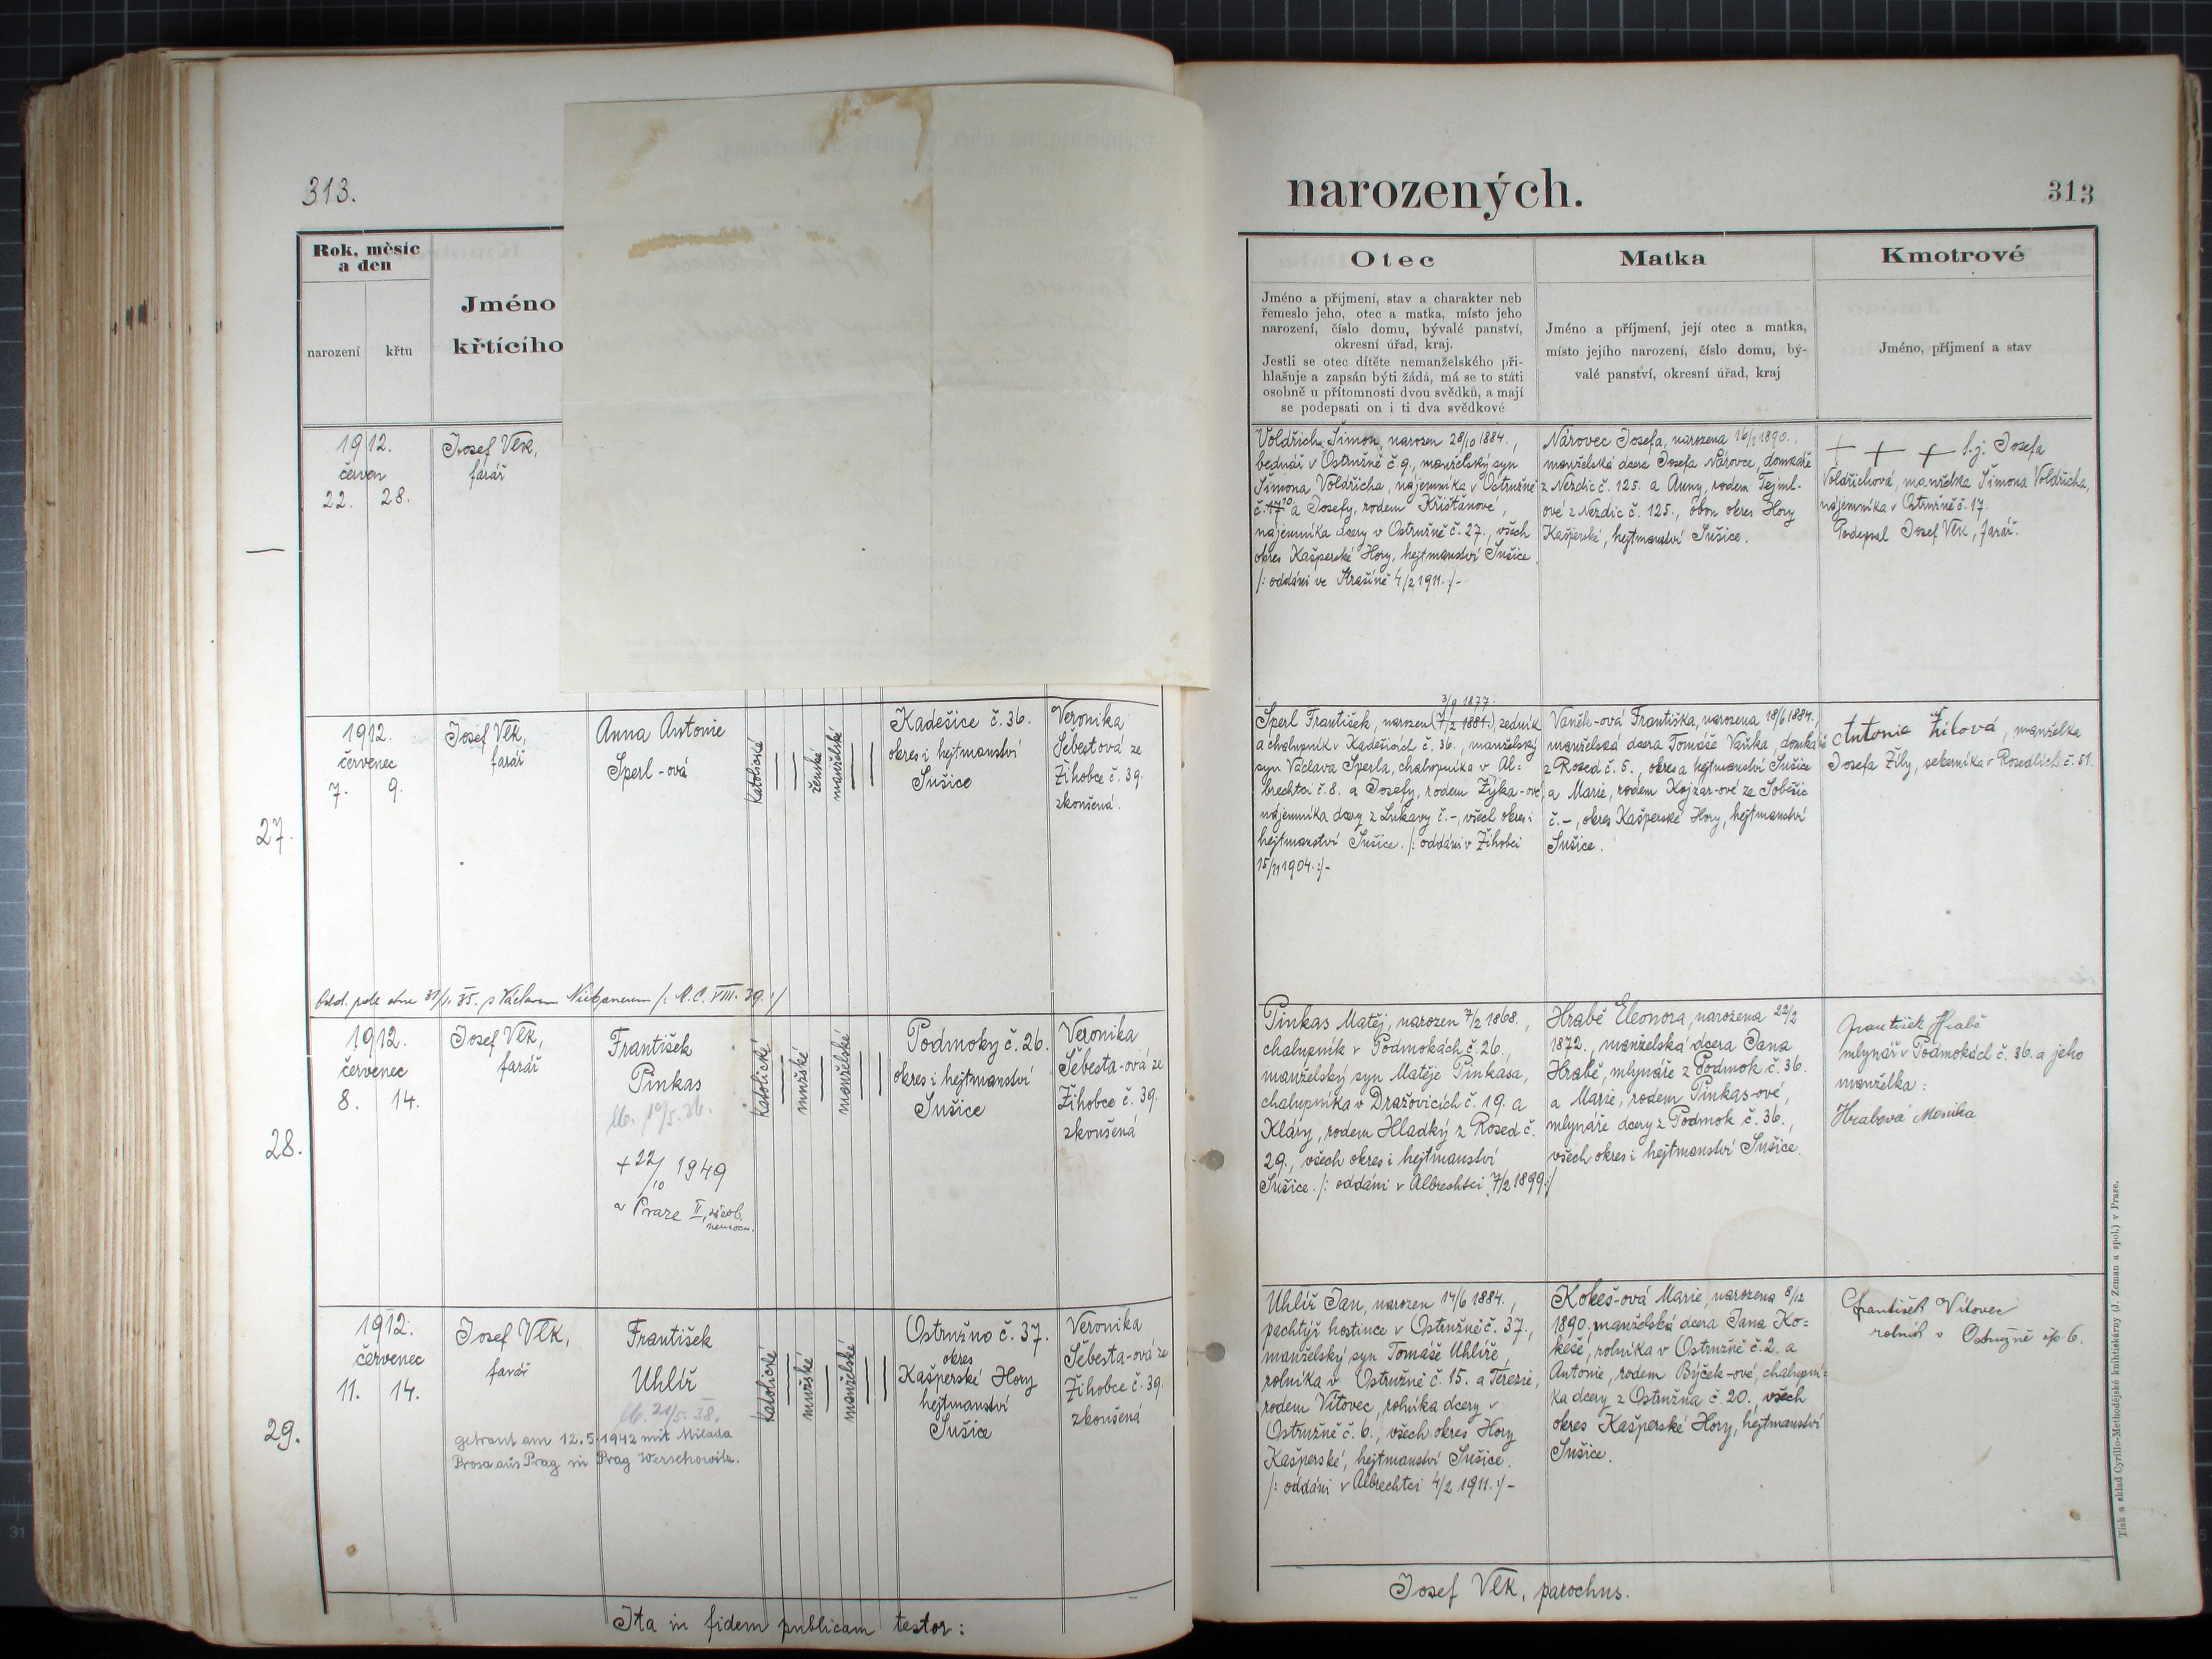 313.
Rok, měsíc
a den
narození
křtu
Jméno
křtícího
1912.
červen
22. 28.
Josef Vlk,
farář
27.
1912.
červenec
7. 9.
Josef Vlk,
farář
Anna Antonie
Šperl-ová
katolické
ženské
manželské
Kadešice č. 36.
okres i hejtmanství
Sušice
Veronika
Šebestová ze
Žihobce č. 39.
zkoušená.
s Václavem
28.
1912.
červenec
8. 14.
Josef Vlk,
farář
František
Pinkas
+ 22/10 1949
v Praze II,
katolické
mužské
manželské
Podmoky č. 26.
okres i hejtmanství
Sušice
Veronika
Šebesta-ová ze
Žihobce č. 39.
zkoušená
29.
1912.
červenec
11. 14.
Josef Vlk,
farář
František
Uhlíř
getraut am 12.5.1942 mit Milada
Prosa aus Prag in Prag Werschowitz.
katolické
mužské
manželské
Ostružno č. 37.
okres
Kašperské Hory
hejtmanství
Sušice
Veronika
Šebesta-ová ze
Žihobce č. 39.
zkoušená
Ita in fidem publicam testor:
narozených.
313
Otec
Matka
Kmotrové
Jméno a příjmení, stav a charakter neb
řemeslo jeho, otec a matka, místo jeho
narození, číslo domu, bývalé panství,
okresní úřad, kraj.
Jestli se otec dítěte nemanželského při-
hlašuje a zapsán býti žádá, má se to státi
osobně u přítomnosti dvou svědků, a mají
se podepsati on i ti dva svědkové
Jméno a příjmení, její otec a matka,
místo jejího narození, číslo domu, bý-
valé panství, okresní úřad, kraj
Jméno, příjmení a stav
Voldřich Šimon, narozen 28/10 1884.,
bednář v Ostružně č. 9., manželský syn
Šimona Voldřicha, nájemníka v Ostružně
č. 17 10 a Josefy, rodem Křišťanove,
nájemníka dcery v Ostružně č. 27., všech
okres Kašperské Hory, hejtmanství Sušice.
/: oddáni ve Strašíně 4/2 1911. :/-
Nárovec Josefa, narozena 16/1 1890.,
manželská dcera Josefa Nárovce, domkáře
z Nezdic č. 125. a Anny, rodem Tejml-
ové z Nezdic č. 125., obou okres Hory
Kašperské, hejtmanství Sušice.
+ + + t. j. Josefa
Voldřichová, manželka Šimona Voldřicha,
nájemníka v Ostružně č. 17.
Podepsal Josef Vlk, farář.
3/9 1877.
Šperl František, narozen (7/2 1881.) zedník
a chalupník v Kadešicích č. 36., manželský
syn Václava Šperla, chalupníka v Al-
brechtci č. 8. a Josefy, rodem Zýka-ové,
nájemníka dcery z Lukavy č. -, všech okres i
hejtmanství Sušice. /: oddáni v Žihobci
15/11 1904. :/-
Vaněk-ová Františka, narozena 18/6 1884.,
manželská dcera Tomáše Vaňka, domkáře
z Rosed č. 5., okres a hejtmanství Sušice
a Marie, rodem Kojzar-ové ze Soběšic
č. -, okres Kašperské Hory, hejtmanství
Sušice.
Antonie Žilová, manželka
Josefa Žíly, sekerníka v Rosedlích č. 51.
Pinkas Matěj, narozen 7/2 1868.,
chalupník v Podmokách č. 26.,
manželský syn Matěje Pinkasa,
chalupníka v Dražovicích č. 19. a
Kláry, rodem Hladký z Rosed č.
29., všech okres i hejtmanství
Sušice. /: oddáni v Albrechtci 7/2 1899 :/
Hrabě Eleonora, narozena 22/2
1872., manželská dcera Jana
Hrabě, mlynáře z Podmok č. 36.
a Marie, rodem Pinkas-ové,
mlynáře dcery z Podmok č. 36.,
všech okres i hejtmanství Sušice.
František Hrabě
mlynář v Podmokách č. 36. a jeho
manželka:
Hrabová Monika
Uhlíř Jan, narozen 14/6 1884.,
pachtýř hostince v Ostružně č. 37.,
manželský syn Tomáše Uhlíře,
rolníka v Ostružně č. 15. a Terezie,
rodem Vítovec, rolníka dcery v
Ostružně č. 6., všech okres Hory
Kašperské, hejtmanství Sušice.
/: oddáni v Albrechtci 4/2 1911. :/-
Kokeš-ová Marie, narozena 8/12
1890. manželská dcera Jana Ko-
keše, rolníka v Ostružně č. 2. a
Antonie, rodem Býček-ové, chalupní-
ka dcery z Ostružna č. 20., všech
okres Kašperské Hory, hejtmanství
Sušice.
František Vítovec
rolník v Ostružně čp 6.
Josef Vlk, parochus.
Tisk a sklad Cyrillo-Methodějské knihtiskárny (J. Zeman a spol.) v Praze.